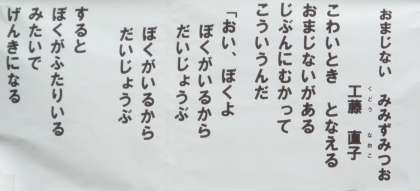 おまじない　みみずみつお
工藤　直子
くどう　なおこ
こわいとき　となえる
おまじないがある
じぶんにむかって
こういうんだ
「おい、ぼくよ
ぼくがいるから
だいじょうぶ
ぼくがいるから
だいじょうぶ
すると
ぼくがふたりいる
みたいで
げんきになる